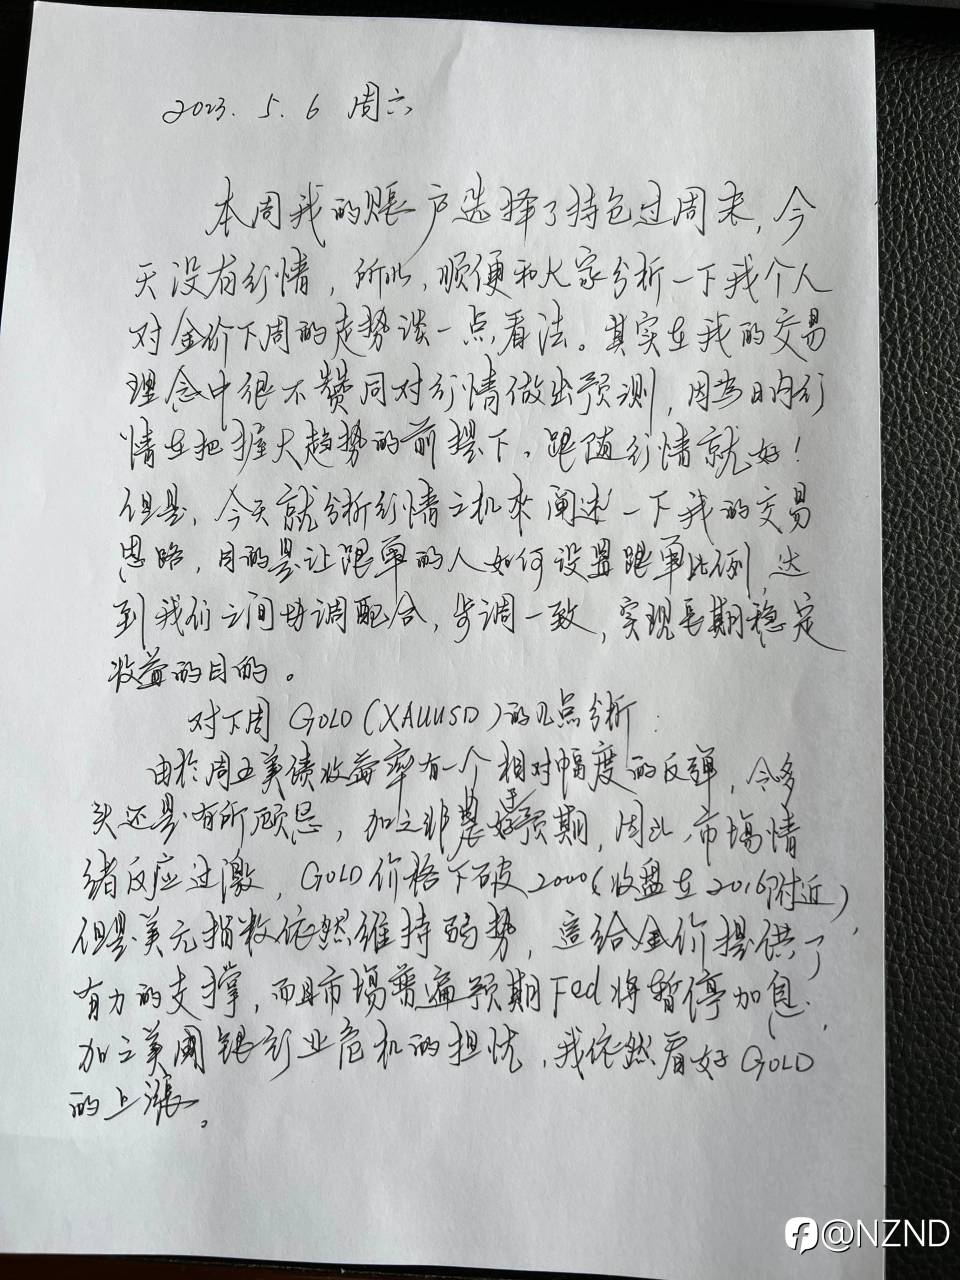 2023. 5. 6 周六
本周我的賬户选择了持仓过周末,今
天没有行情,所以,顺便和大家分析一下我个人
对金价下周的走势谈一点看法。其实在我的交易
理念中很不赞同对行情做出预测,因为日内行
情在把握大趋势的前提下,跟随行情就好!
但是,今天就分析行情之机来阐述一下我的交易
思路,目的是让跟單的人如何设置跟單比例,达
到我们之间协调配合,步调一致,实现長期稳定
收益的目的。
对下周 GOLD(XAUUSD)的几点分析:
由於周五美债收益率有一个相对幅度的反弹,令多
头还是有所顾忌,加之非農好于预期,因此,市場情
绪反应过激,GOLD价格下破2000(收盘在2016附近)
但是美元指数依然维持弱势,這给金价提供了
有力的支撑,而且市場普遍预期Fed将暂停加息.
加之美國银行业危机的担忧,我依然看好GOLD
的上漲。
@NZND